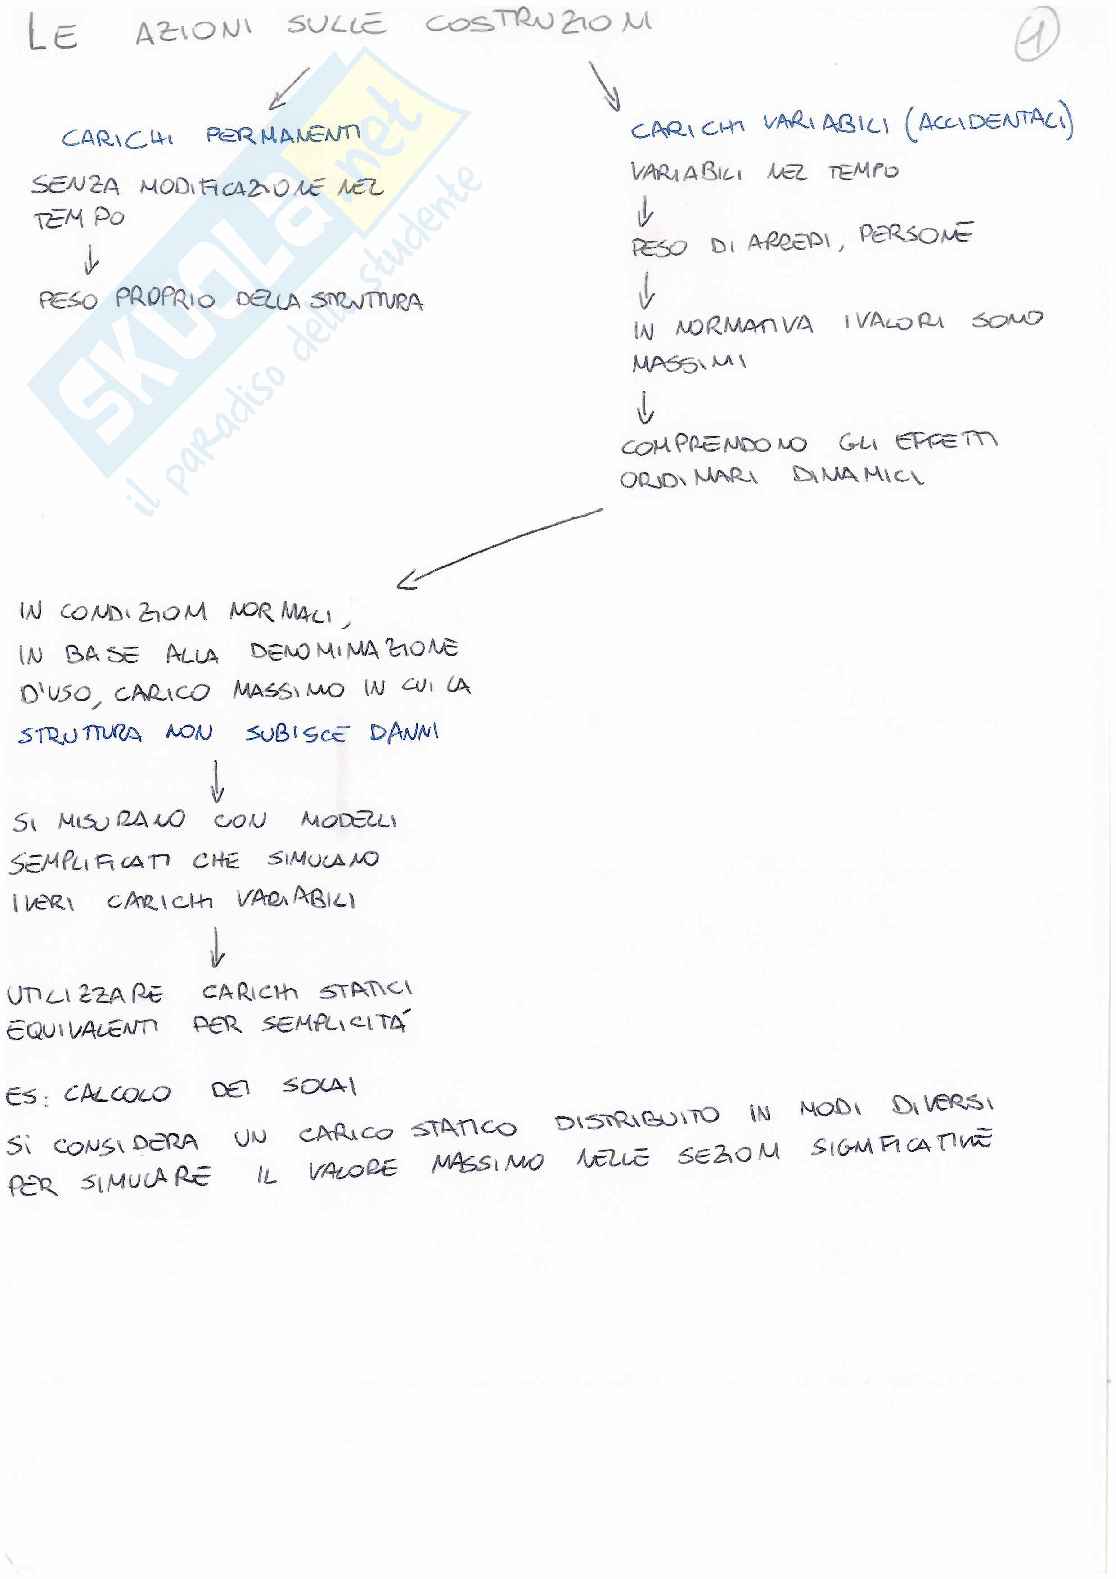 LE AZIONI SULLE COSTRUZIONI
1
CARICHI PERMANENTI
SENZA MODIFICAZIONE NEL
TEMPO
PESO PROPRIO DELLA STRUTTURA
CARICHI VARIABILI (ACCIDENTALI)
VARIABILI NEL TEMPO
PESO DI ARREDI, PERSONE
IN NORMATIVA I VALORI SONO
MASSIMI
COMPRENDONO GLI EFFETTI
ORDINARI DINAMICI
IN CONDIZIONI NORMALI,
IN BASE ALLA DENOMINAZIONE
D'USO, CARICO MASSIMO IN CUI LA
STRUTTURA NON SUBISCE DANNI
SI MISURANO CON MODELLI
SEMPLIFICATI CHE SIMULANO
I VERI CARICHI VARIABILI
UTILIZZARE CARICHI STATICI
EQUIVALENTI PER SEMPLICITÁ
ES: CALCOLO DEI SOLAI
SI CONSIDERA UN CARICO STATICO DISTRIBUITO IN MODI DIVERSI
PER SIMULARE IL VALORE MASSIMO NELLE SEZIONI SIGNIFICATIVE
SKUOLA.net
il paradiso dello studente